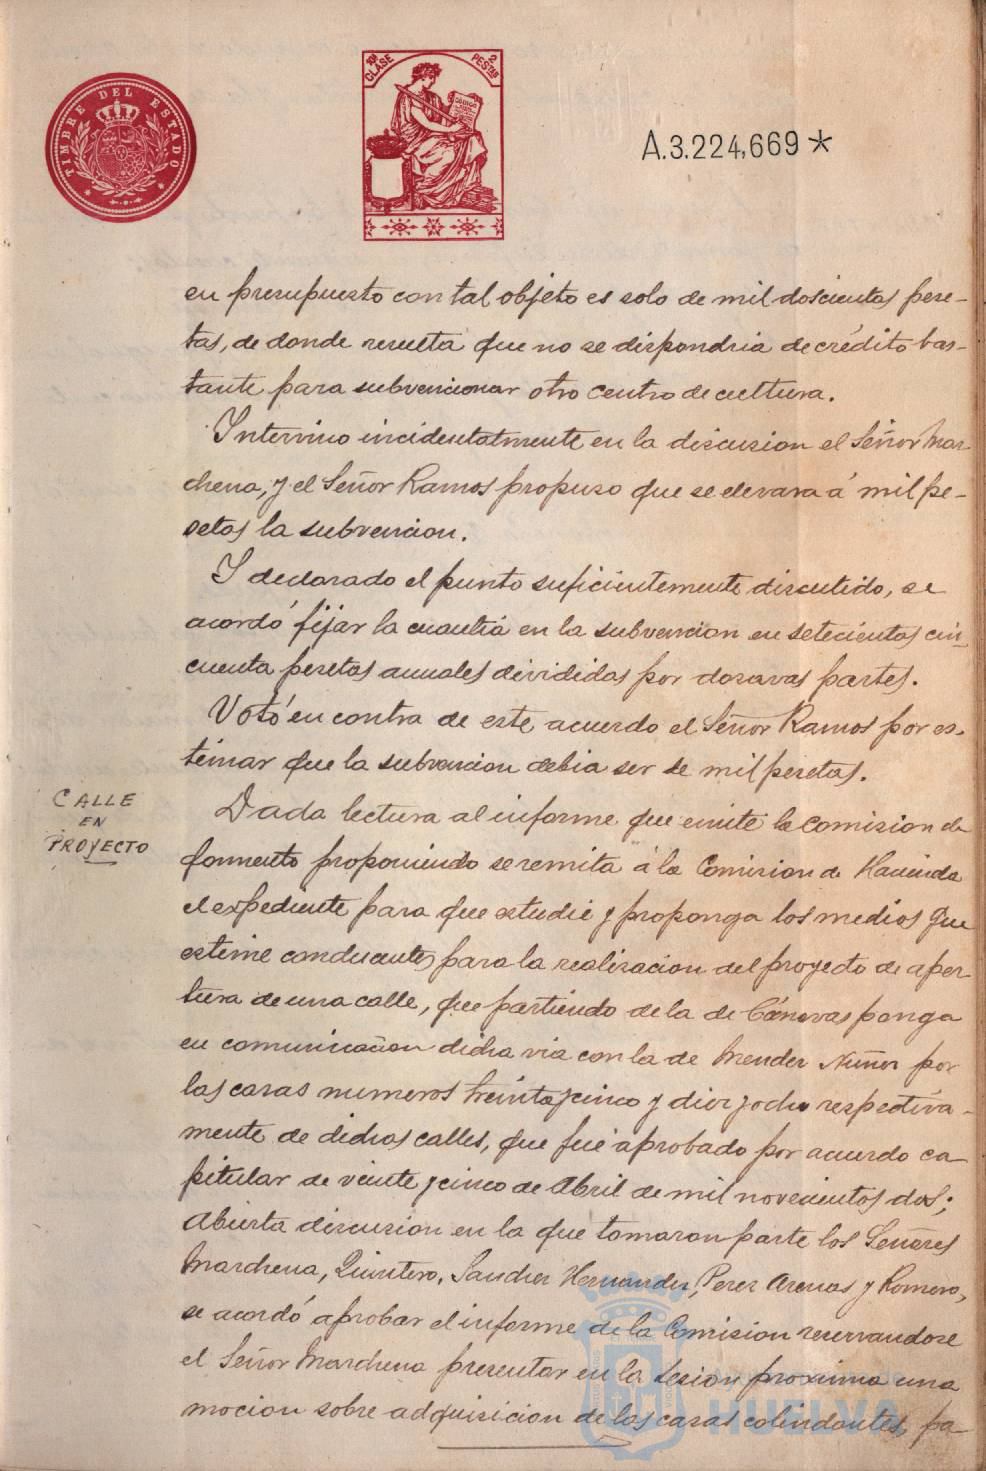 TIMBRE DEL ESTADO
10ª CLASE
2 PESTAS
CODIGO
A.3.224,669*
en presupuesto con tal objeto es solo de mil doscientas pese-
tas, de donde resulta que no se dispondria de crédito bas-
tante para subvencionar otro centro de cultura.
Intervino incidentalmente en la discusion el Señor Mar-
chena, y el Señor Ramos propuso que se elevara á mil pe-
setas la subvencion.
Y declarado el punto suficientemente discutido, se
acordó fijar la cuantia en la subvencion en setecientas cin-
cuenta pesetas anuales divididas por dozavas partes.
Votó en contra de este acuerdo el Señor Ramos por es-
timar que la subvencion debia ser de mil pesetas.
CALLE
EN
PROYECTO
Dada lectura al informe que emite la comision de
fomento proponiendo se remita á la Comision de Hacienda
el expediente para que estudie y proponga los medios que
estime conducentes para la realizacion del proyecto de aper-
tura de una calle, que partiendo de la de Cánovas ponga
en comunicacion dicha via con la de Mendez Nuñez por
las casas numeros treinta y cinco y diez y ocho respectiva-
mente de dichas calles, que fué aprobado por acuerdo ca-
pitular de veinte y cinco de Abril de mil novecientos dos;
Abierta discusion en la que tomaron parte los Señores
Marchena, Quintero, Sanchez Hernandez, Perez Arenas y Romero,
se acordó aprobar el informe de la Comision reservandose
el Señor Marchena presentar en la sesion proxima una
mocion sobre adquisicion de las casas colindantes, pa-
HUELVA